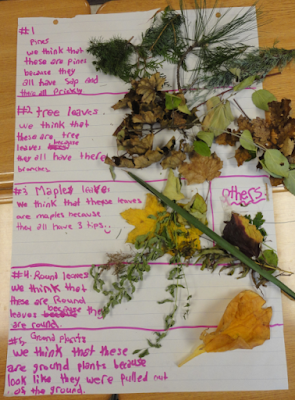 #1
Pines
we think that
these are pines
because they
all have Sap and
they all Prickly
#2 tree leaves
we think that
these are, tree
because
leaves
they all have there
branches
#3 Maple leaves
We think that theyse leaves
are maples because
they all have 3 tips.
Others
#4. Round leaves
we think that
these are Round
because
leaves they
are round.
#5. Ground plants
we think that these
are ground plants because
look like they were pulled out
of the ground.